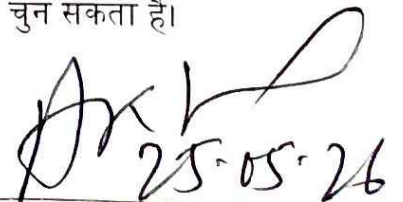 चुन सकता है।
25.05.26